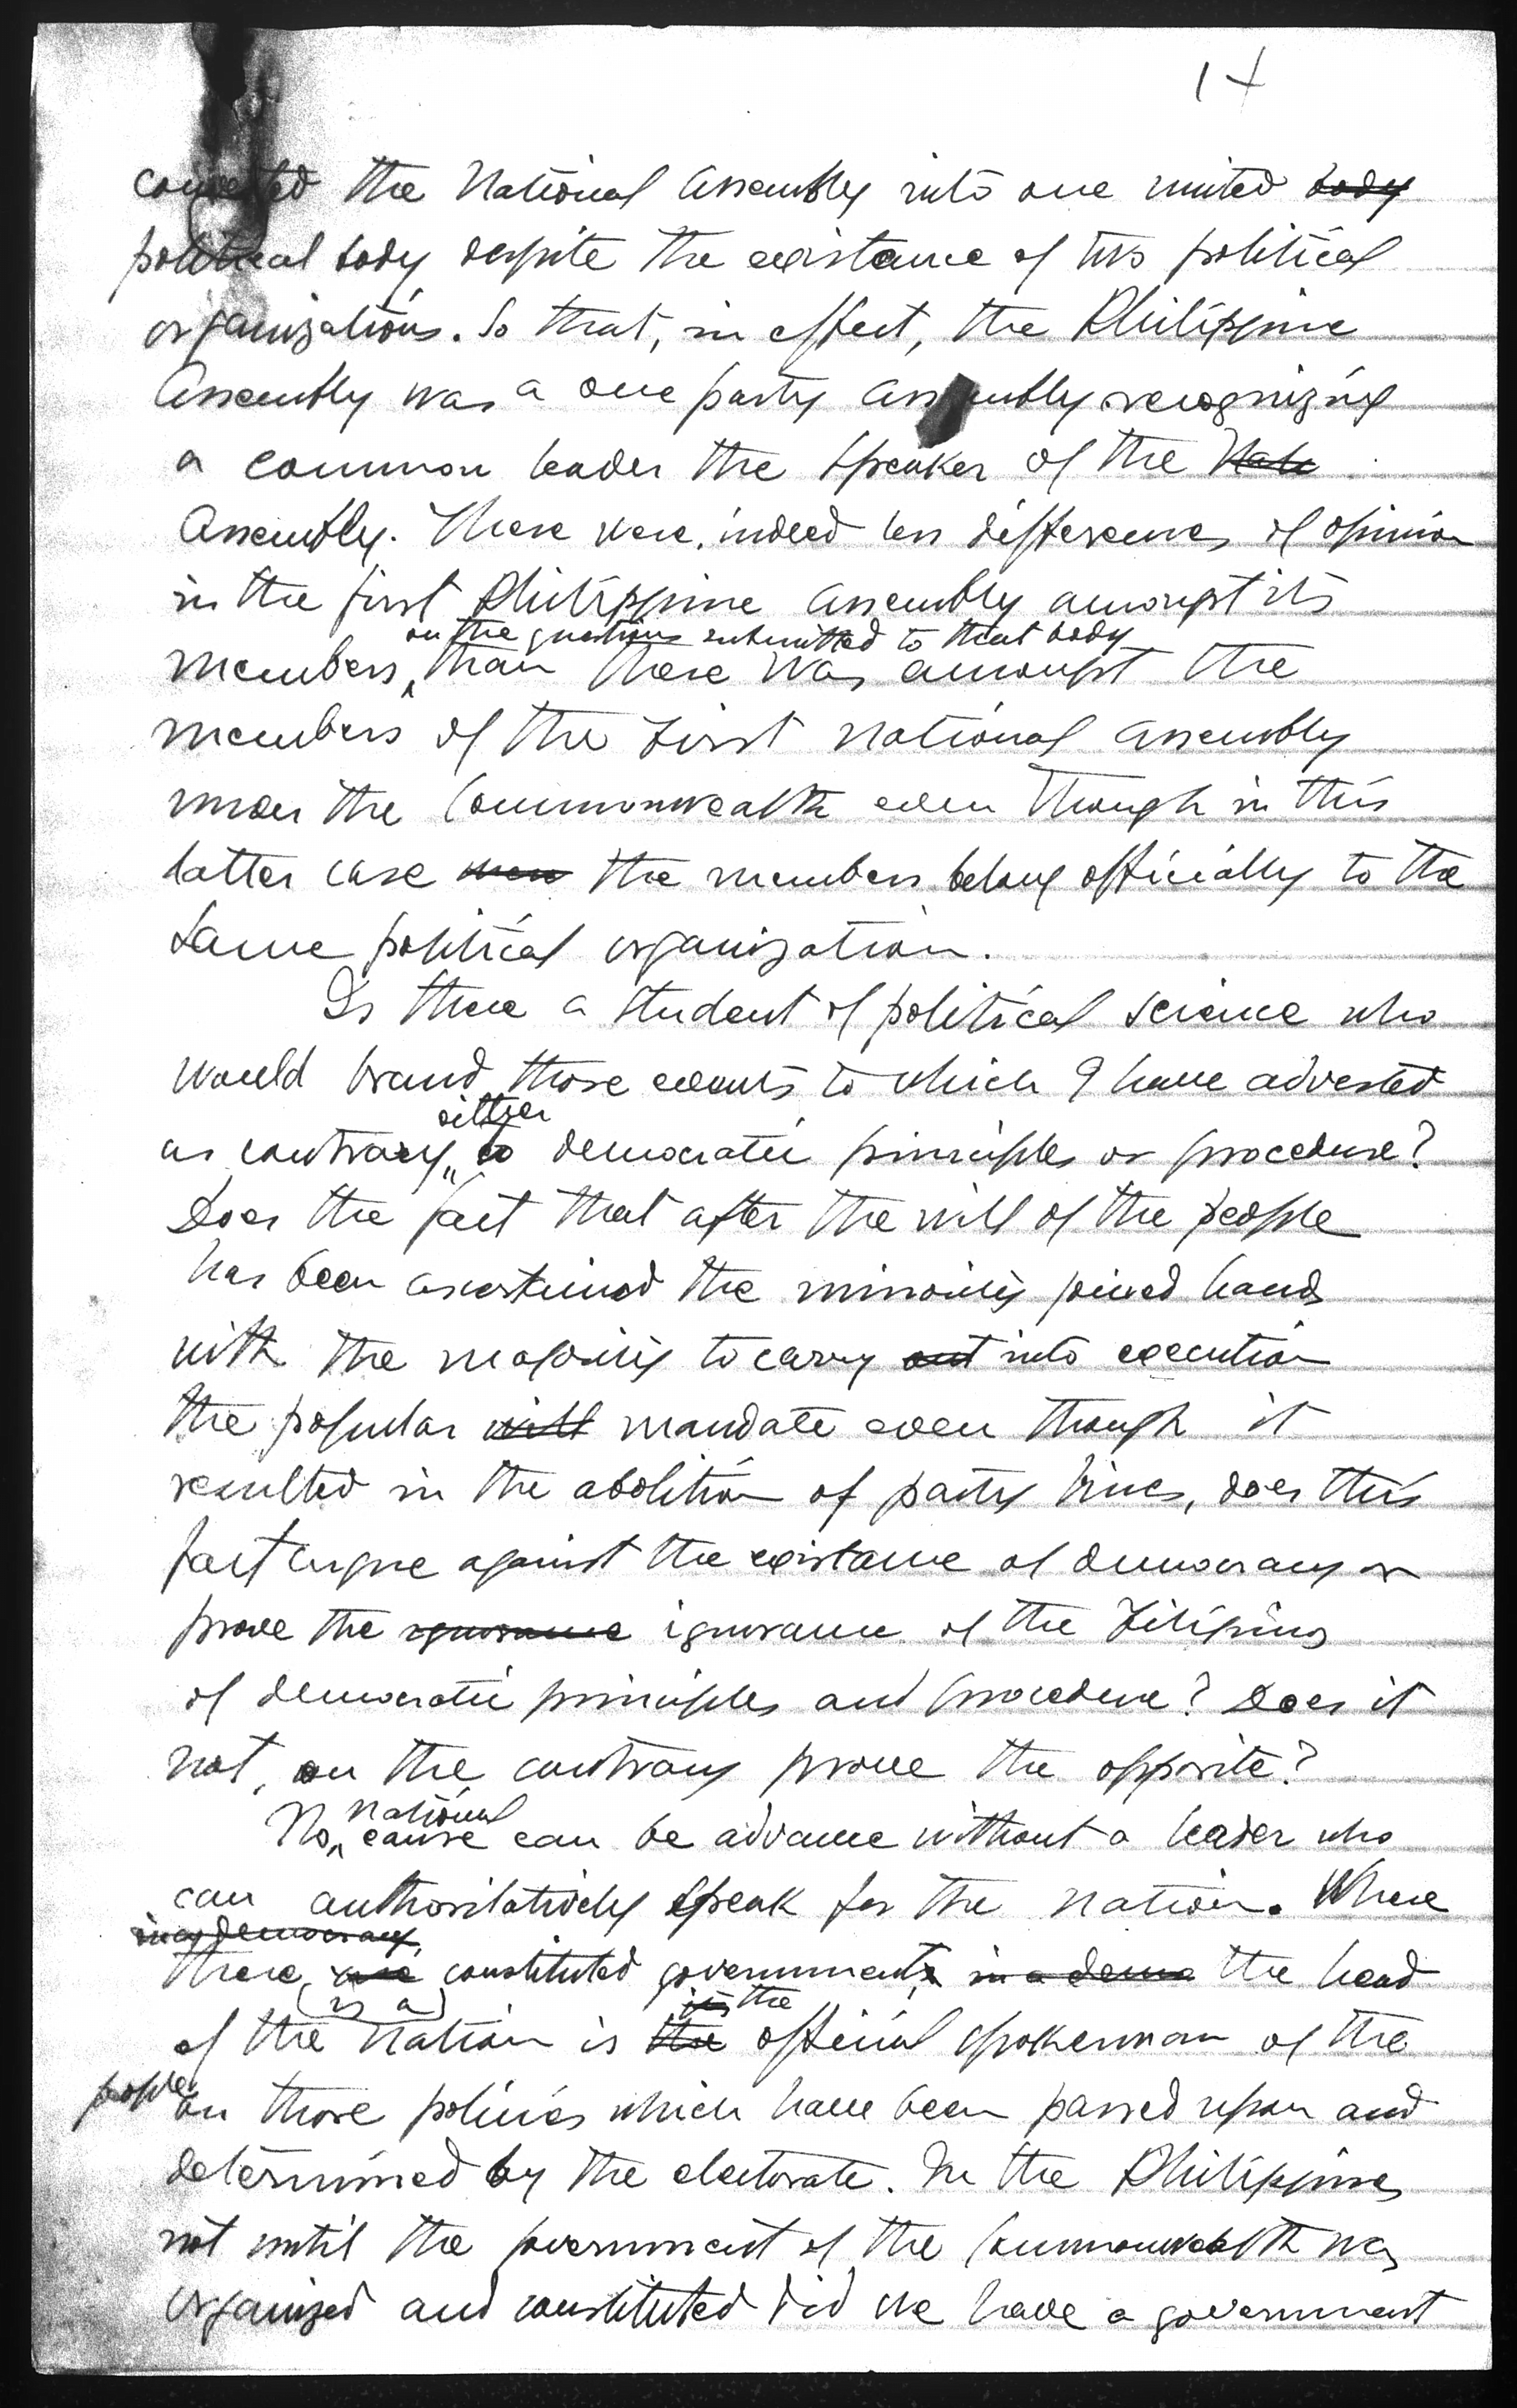 14
converted the National Assembly into one united body
political body despite the existance of two political
organizations. So that, in effect, the Philippine
Assembly was a one party assembly recognizing
a common leader the Speaker of the Nati
Assembly. There were, indeed less differences of opinion
in the first Philippine Assembly amongst its
on the questions submitted to that body
members, than there was amongst the
members of the First National Assembly
under the Commonwealth even though in this
latter case were the members belong officially to the
same political organization.
Is there a student of political science who
would brand those events to which I have adverted
either
as contrary to democratic principles or procedure?
Does the fact that after the will of the people
has been ascertained the minority joined hands
with the majority to carry out into execution
the popular will mandate even though it
resulted in the abolition of party lines, does this
fact argue against the existance of democracy or
prove the ignorance ignorance of the Filipinos
of democratic principles and procedure? Does it
not, on the contrary prove the opposite?
national
No cause can be advance without a leader who
can authoritatively speak for the nation. Where
in a democracy,
there are constituted governments in a demo the head
(is a) its the
of the Nation is the official spokesman of the
people
on those policies which have been passed upon and
determined by the electorate. In the Philippines
not until the government of the Commonwealth was
organized and constituted did we have a government